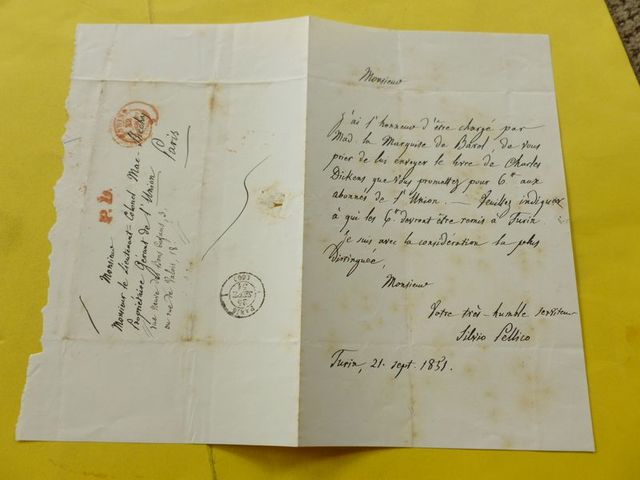 Monsieur
Monsieur le Lieutenant-Colonel Mac-Sheehy
Propriétaire Gérant de l'Union
Rue Neuve des Bons Enfans, 3.
ou rue de Valois, 18
Paris
P. D.
PARIS
(60)
Monsieur
J'ai l'honneur d'être chargé par
Mad. la Marquise de Barol, de vous
prier de lui envoyer le livre de Charles
Dickens que Vous promettez pour 6 fr aux
abonnés de l'Union. — Veuillez indiquer
à qui les 6 fr devront être remis à Turin
Je suis avec la considération la plus
Distinguée,
Monsieur
Votre très-humble serviteur
Silvio Pellico
Turin, 21. sept. 1851.